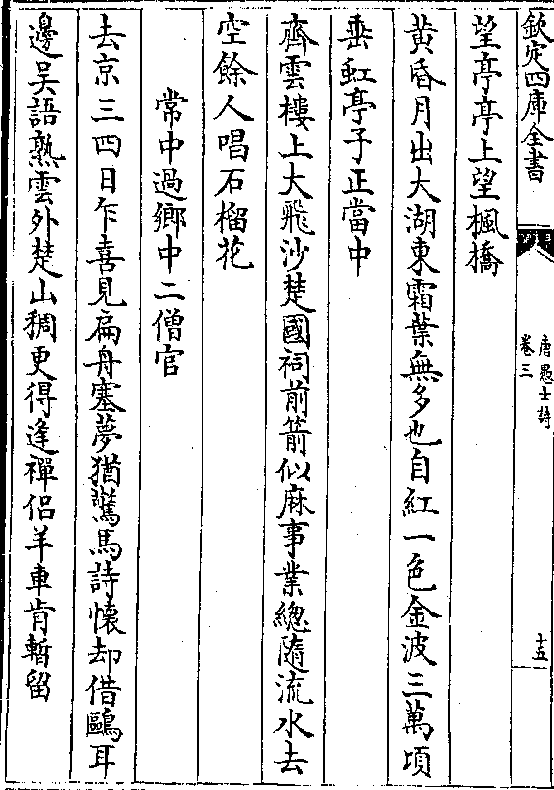 欽定四庫全書
唐愚士詩
卷三
十五
望亭亭上望楓橋
黄昏月出大湖東霜葉無多也自紅一色金波三萬頃
垂虹亭子正當中
齊雲樓上大飛沙楚國祠前箭似麻事業總隨流水去
空餘人唱石榴花
常中過鄉中二僧官
去京三四日乍喜見扁舟塞夢猶驚馬詩懐却借鷗耳
邊吴語熟雲外楚山稠更得逢禪侣羊車肯暫留